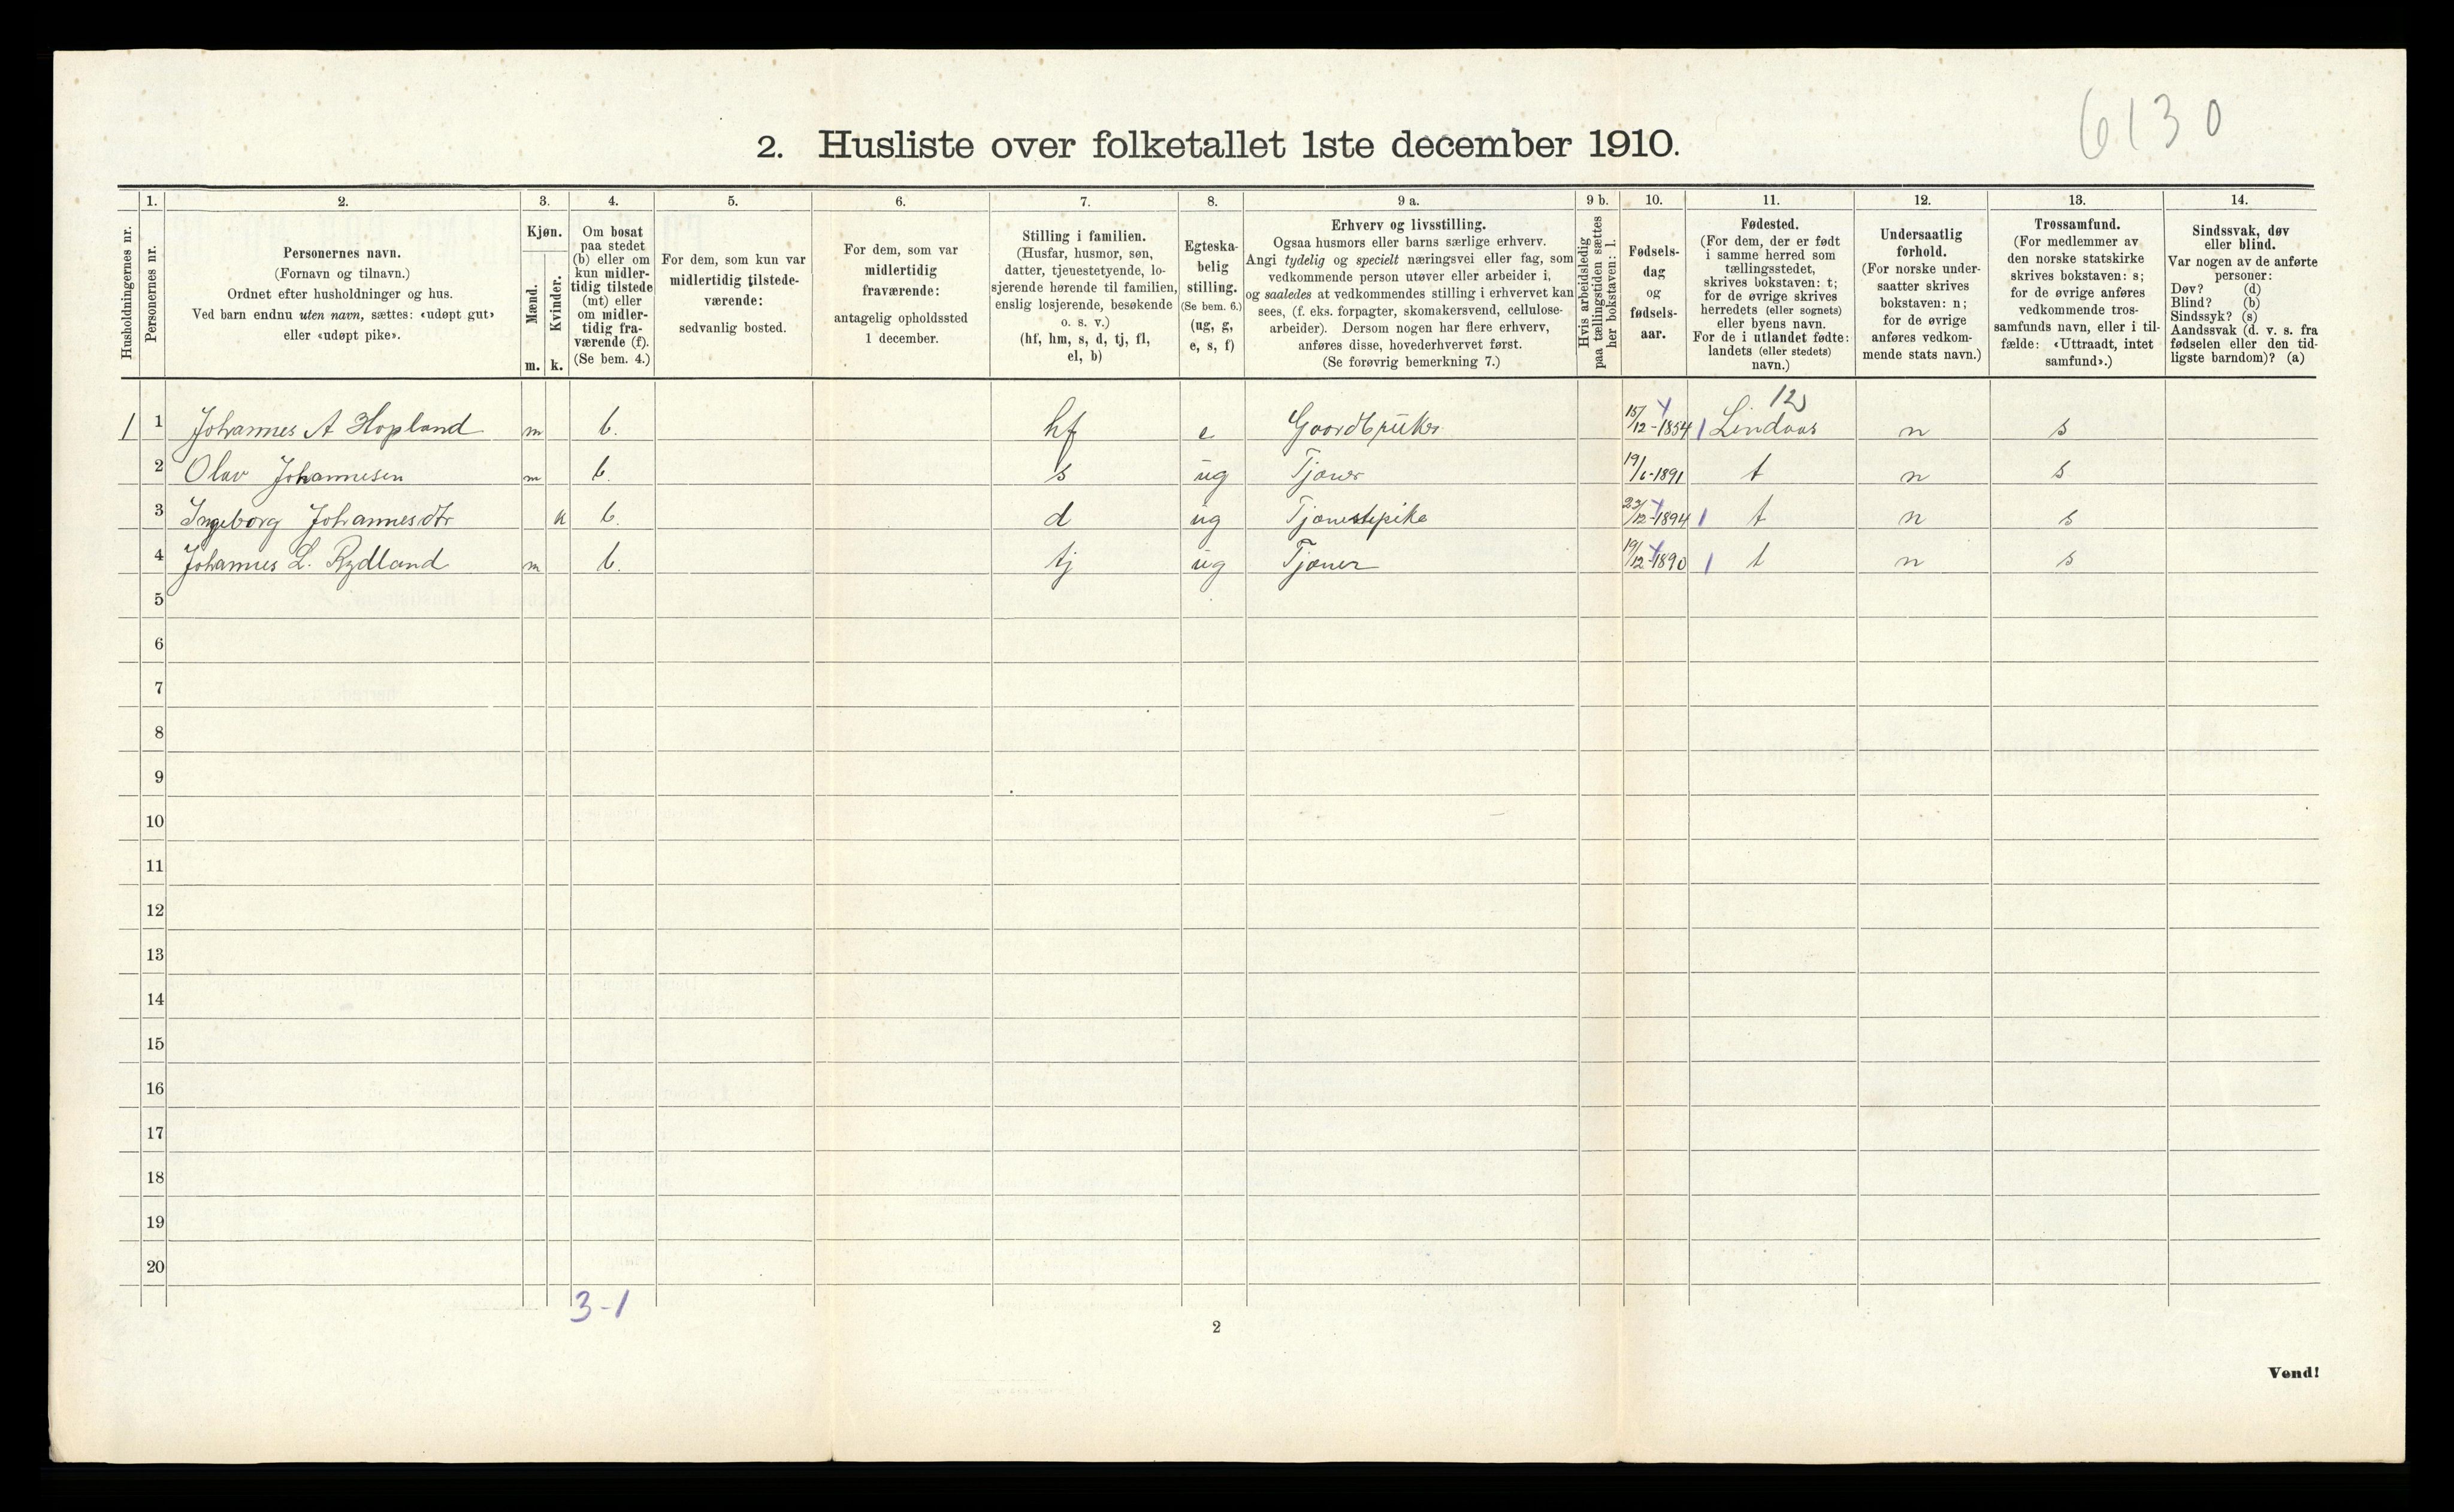 6130
2. Husliste over folketallet 1ste december 1910.
Husholdningernes nr.
1.
Personernes nr.
2.
Personernes navn.
(Fornavn og tilnavn.)
Ordnet efter husholdninger og hus.
Ved barn endnu uten navn, sættes: «udøpt gut»
eller «udøpt pike».
3.
Kjøn.
Mænd.
Kvinder.
m. k.
4.
Om bosat
paa stedet
(b) eller om
kun midler-
tidig tilstede
(mt) eller
om midler-
tidig fra-
værende (f).
(Se bem. 4.)
5.
For dem, som kun var
midlertidig tilstede-
værende:
sedvanlig bosted.
6.
For dem, som var
midlertidig
fraværende:
antagelig opholdssted
1 december.
7.
Stilling i familien.
(Husfar, husmor, søn,
datter, tjenestetyende, lo-
sjerende hørende til familien,
enslig losjerende, besøkende
o. s. v.)
(hf, hm, s, d, tj, fl,
el, b)
8.
Egteska-
belig
stilling.
(Se bem. 6.)
(ug, g,
e, s, f)
9 a.
Erhverv og livsstilling.
Ogsaa husmors eller barns særlige erhverv.
Angi tydelig og specielt næringsvei eller fag, som
vedkommende person utøver eller arbeider i,
og saaledes at vedkommendes stilling i erhvervet kan
sees, (f. eks. forpagter, skomakersvend, cellulose-
arbeider). Dersom nogen har flere erhverv,
anføres disse, hovederhvervet først.
(Se forøvrig bemerkning 7.)
9 b.
Hvis arbeidsledig
paa tællingstiden sættes
her bokstaven: l.
10.
Fødsels-
dag
og
fødsels-
aar.
11.
Fødested.
(For dem, der er født
i samme herred som
tællingsstedet,
skrives bokstaven: t;
for de øvrige skrives
herredets (eller sognets)
eller byens navn.
For de i utlandet fødte:
landets (eller stedets)
navn.)
12.
Undersaatlig
forhold.
(For norske under-
saatter skrives
bokstaven: n;
for de øvrige
anføres vedkom-
mende stats navn.)
13.
Trossamfund.
(For medlemmer av
den norske statskirke
skrives bokstaven: s;
for de øvrige anføres
vedkommende tros-
samfunds navn, eller i til-
fælde: «Uttraadt, intet
samfund».)
14.
Sindssvak, døv
eller blind.
Var nogen av de anførte
personer:
Døv? (d)
Blind? (b)
Sindssyk? (s)
Aandssvak (d. v. s. fra
fødselen eller den tid-
ligste barndom)? (a)
12
1 1 Johannes A Hopland m b. hf e Gaardbruker 15/12-1854 1 Lindaas n s
2 Olav Johannesen m b. s ug Tjener 19/6-1891 t n s
3 Ingeborg Johannesdtr k b. d ug Tjenestepike 23/12-1894 1 t n s
4 Johannes L. Rydland m b. tj ug Tjener 19/12-1890 1 t n s
5
6
7
8
9
10
11
12
13
14
15
16
17
18
19
20
3-1
2
Vend!